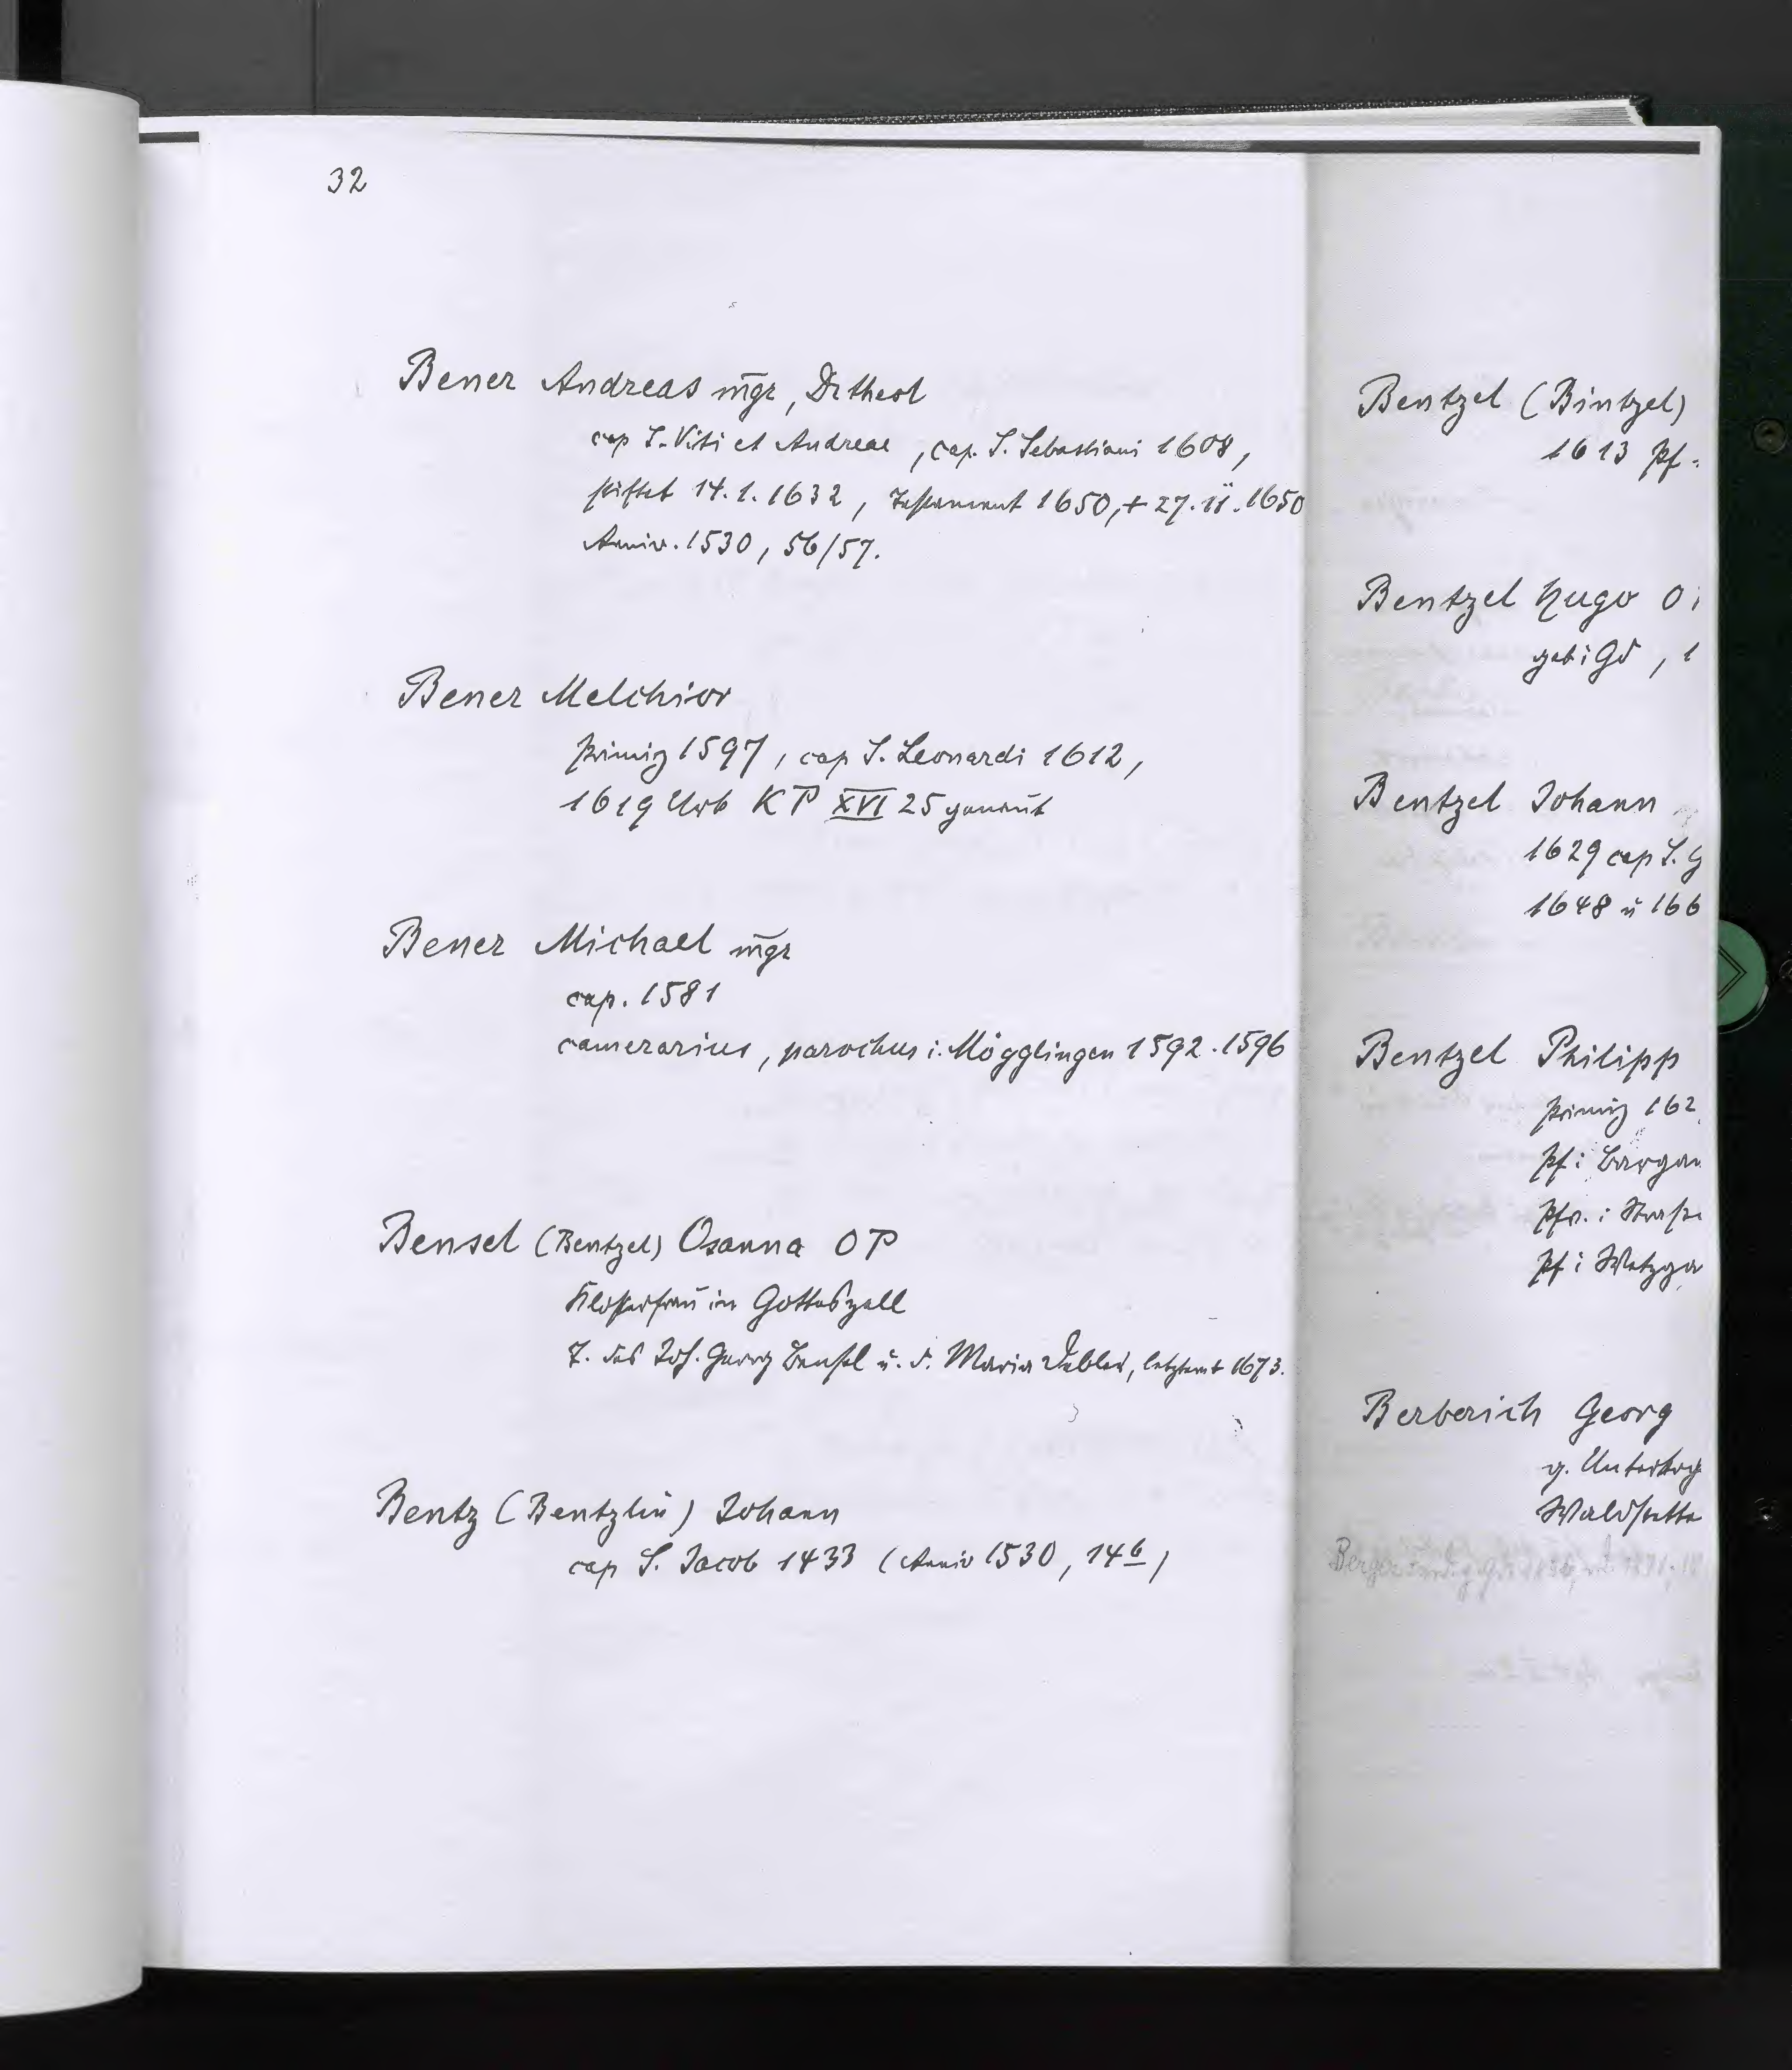 32
Bener Andreas mgr, Dr theol
cap S. Viti et Andreae, cap. S. Sebastiani 1608,
stiftet 14.1.1632, Testament 1650, + 27.II.1650
Anniv. 1530, 56/57.
Bener Melchior
Primiz 1597, cap S. Leonardi 1612,
1619 Urb KP XVI 25 genannt
Bener Michael mgr
cap. 1581
camerarius, parochus i. Mögglingen 1592.1596
Bensel (Bentzel) Osanna OP
Klosterfrau in Gotteszell
T. des Joh. Georg Bensel u. d. Maria Debler, 1673.
Bentz (Bentzlin) Johann
cap S. Jacob 1433 (Anniv 1530, 146)
Bentzel (Bintzel)
1613 Pf.
Bentzel Hugo O
geb i Gd, 1
Bentzel Johann
1629 cap S. G
1648 u 166
Bentzel Philipp
Primiz 162
Pf i Bargau
Pfr. i Straß
Pf i Wetzga
Berberich Georg
g. Unterkoch
Waldstette
Berger